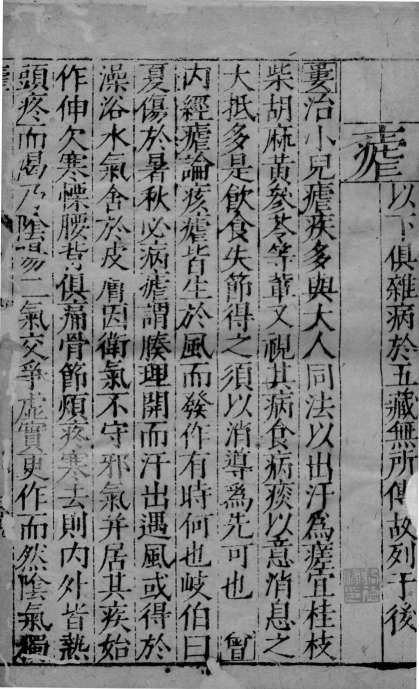 瘧以下俱雜病於五藏無所傳故列于後
婁治小兒瘧疾多與大人同法以出汗為瘥宜桂枝
柴胡麻黃參苓等輩又視其病食病痰以意消息之
大抵多是飲食失節得之須以消導為先可也　曾
內經瘧論痎瘧皆生於風而發作有時何也岐伯曰
夏傷於暑秋必病瘧謂腠理開而汗出遇風或得於
澡浴水氣舍於皮膚因衛氣不守邪氣并居其疾始
作伸欠寒慄腰背俱痛骨節煩疼寒去則內外皆熱
頭疼而渴乃陰陽二氣交爭虛實更作而然陰氣獨